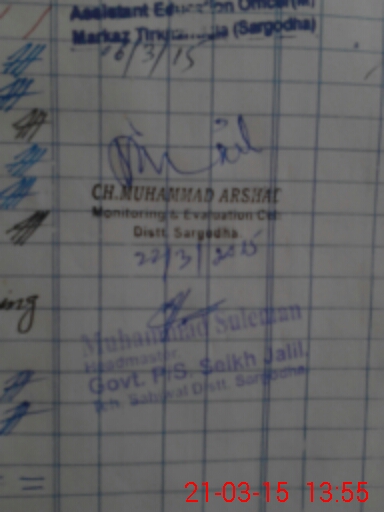 Assistant Education Officer (M)
Markaz (Sargodha)
16/3/15
CH.MUHAMMAD ARSHAD
Monitoring & Evaluation Cell
Distt. Sargodha
22/3/2015
ing
Muhammad Suleman
Headmaster,
Govt. P/S. Seikh Jalil,
Teh. Sahiwal Distt. Sargodha
21-03-15 13:55